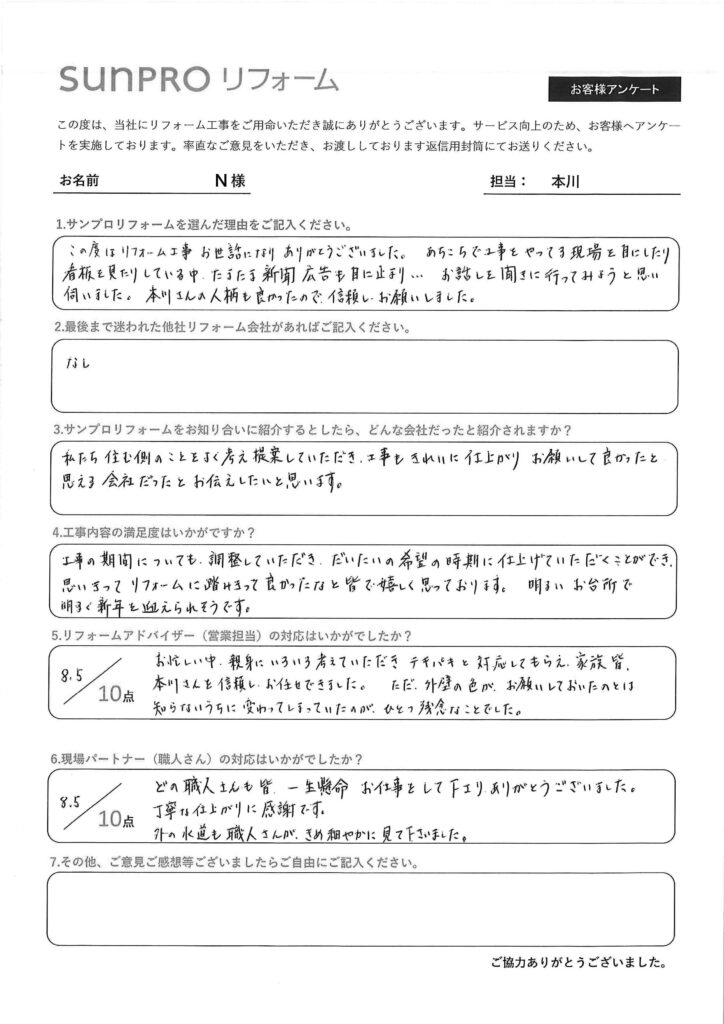 sunPRO リフォーム
お客様アンケート
この度は、当社にリフォーム工事をご用命いただき誠にありがとうございます。サービス向上のため、お客様へアンケー
トを実施しております。率直なご意見をいただき、お渡ししております返信用封筒にてお送りください。
お名前 N様 担当： 本川
1.サンプロリフォームを選んだ理由をご記入ください。
この度はリフォーム工事 お世話になり ありがとうございました。 あちこちで工事をやってる現場を目にしたり
看板を見たりしている中、たまたま新聞広告も目に止まり… お話しを聞きに行ってみようと思い
伺いました。本川さんの人柄も良かったので、信頼し、お願いしました。
2.最後まで迷われた他社リフォーム会社があればご記入ください。
なし
3.サンプロリフォームをお知り合いに紹介するとしたら、どんな会社だったと紹介されますか？
私たち 住む側のことをよく考え提案していただき、工事もきれいに仕上がり お願いして良かったと
思える会社だったとお伝えしたいと思います。
4.工事内容の満足度はいかがですか？
工事の期間についても、調整していただき、だいたいの希望の時期に仕上げていただくことができ、
思いきって リフォームに踏みきって良かったなと皆で嬉しく思っております。 明るいお台所で
明るく新年を迎えられそうです。
5.リフォームアドバイザー（営業担当）の対応はいかがでしたか？
8.5／10点
お忙しい中、親身にいろいろ考えていただき テキパキと対応してもらえ、家族皆、
本川さんを信頼し、お任せできました。 ただ、外壁の色が、お願いしておいたのとは
知らないうちに変わってしまっていたのが、ひとつ残念なことでした。
6.現場パートナー（職人さん）の対応はいかがでしたか？
8.5／10点
どの職人さんも皆、一生懸命 お仕事をして下さり、ありがとうございました。
丁寧な仕上がりに感謝です。
外の水道も職人さんが、きめ細やかに見て下さいました。
7.その他、ご意見ご感想等ございましたらご自由にご記入ください。
ご協力ありがとうございました。